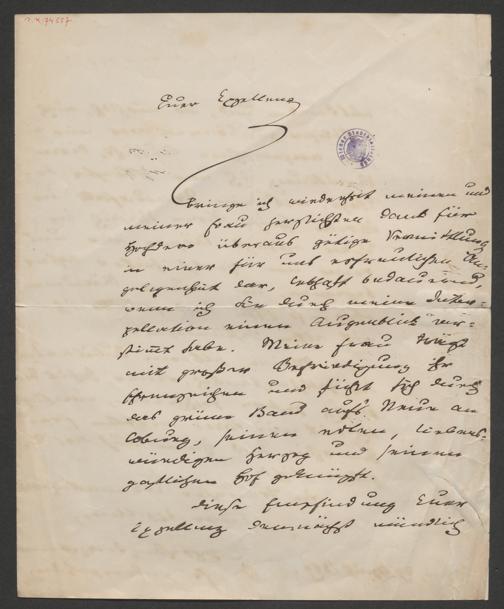 I.N. 174557
Euer Exzellenz
bringe ich wiederholt meinen und
meiner Frau herzlichsten Dank für
Hochdero überaus gütige Vermittlung
in einer für uns erfreulichen An-
gelegenheit dar, lebhaft bedauernd,
wenn ich Sie durch meine Inter-
pellation einen Augenblick ver-
stimmt habe. Meine Frau trägt
mit großer Befriedigung ihr
Ehrenzeichen und fühlt sich durch
das grüne Band aufs Neue an
Coburg, seinen edlen, liebens-
würdigen Herzog und seinen
gastlichen Hof geknüpft.
Diese Empfindung Euer
Exzellenz demnächst mündlich